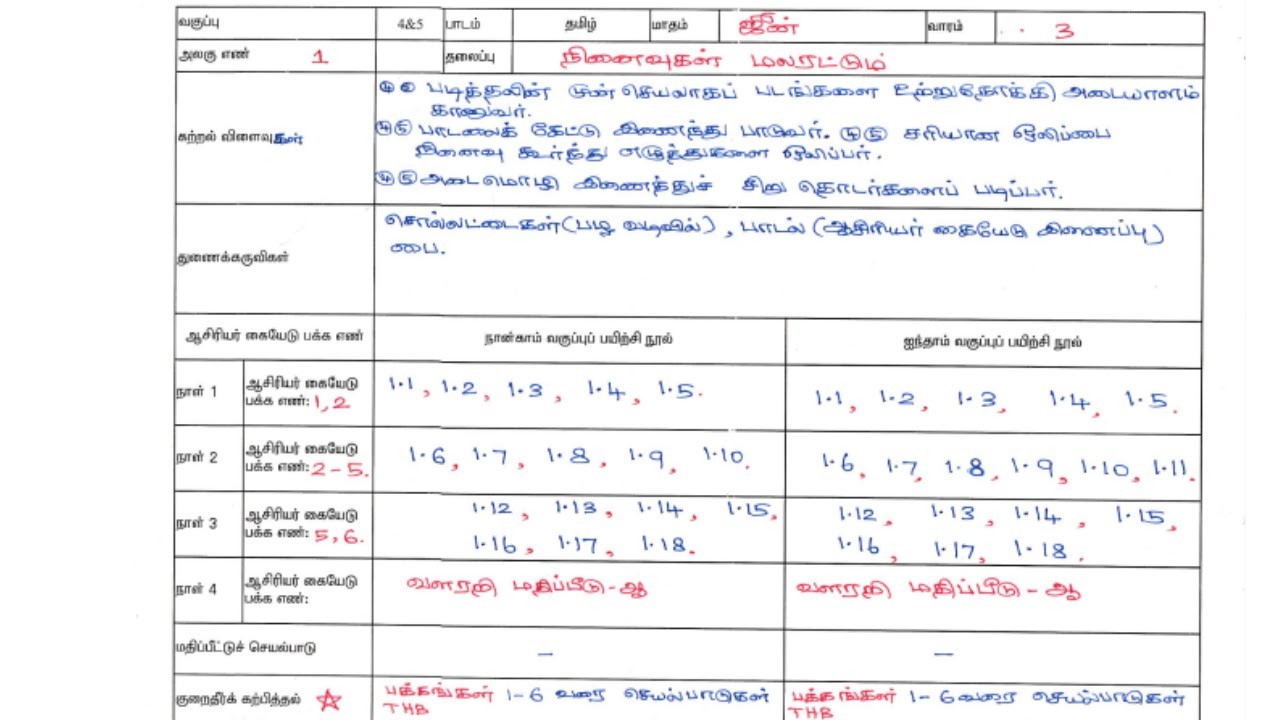 வகுப்பு 4&5 பாடம் தமிழ் மாதம் ஜூன் வாரம் 3
அலகு எண் 1 தலைப்பு நினைவுகள் மலரட்டும்
④⑤ படித்தலின் முன் செயலாகப் படங்களை உற்றுநோக்கி அடையாளம்
காணுவர்.
④⑤ பாடலைக் கேட்டு இணைந்து பாடுவர். ④⑤ சரியான ஒலிப்பை
கற்றல் விளைவுகள்
நினைவு கூர்ந்து எழுத்துகளை ஒலிப்பர்.
④⑤ அடைமொழி இணைத்துச் சிறு தொடர்களைப் படிப்பர்.
சொல்லட்டைகள் (பழ வடிவில்), பாடல் (ஆசிரியர் கையேடு இணைப்பு)
பை.
துணைக்கருவிகள்
ஆசிரியர் கையேடு பக்க எண் நான்காம் வகுப்புப் பயிற்சி நூல் ஐந்தாம் வகுப்புப் பயிற்சி நூல்
நாள் 1 ஆசிரியர் கையேடு 1.1, 1.2, 1.3, 1.4, 1.5. 1.1, 1.2, 1.3, 1.4, 1.5.
பக்க எண்: 1, 2
நாள் 2 ஆசிரியர் கையேடு 1.6, 1.7, 1.8, 1.9, 1.10. 1.6, 1.7, 1.8, 1.9, 1.10, 1.11.
பக்க எண்: 2-5.
நாள் 3 ஆசிரியர் கையேடு 1.12, 1.13, 1.14, 1.15, 1.12, 1.13, 1.14, 1.15,
பக்க எண்: 5, 6. 1.16, 1.17, 1.18. 1.16, 1.17, 1.18.
நாள் 4 ஆசிரியர் கையேடு வளரறி மதிப்பீடு - ஆ வளரறி மதிப்பீடு - ஆ
பக்க எண்:
மதிப்பீட்டுச் செயல்பாடு — —
குறைதீர்க் கற்பித்தல் பக்கங்கள் 1-6 வரை செயல்பாடுகள் பக்கங்கள் 1-6 வரை செயல்பாடுகள்
THB THB